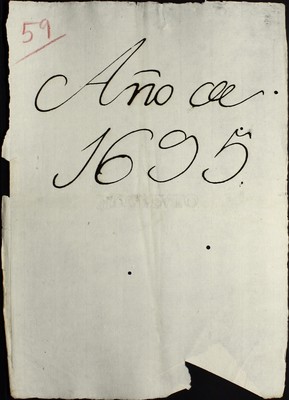 59
Año de
1695